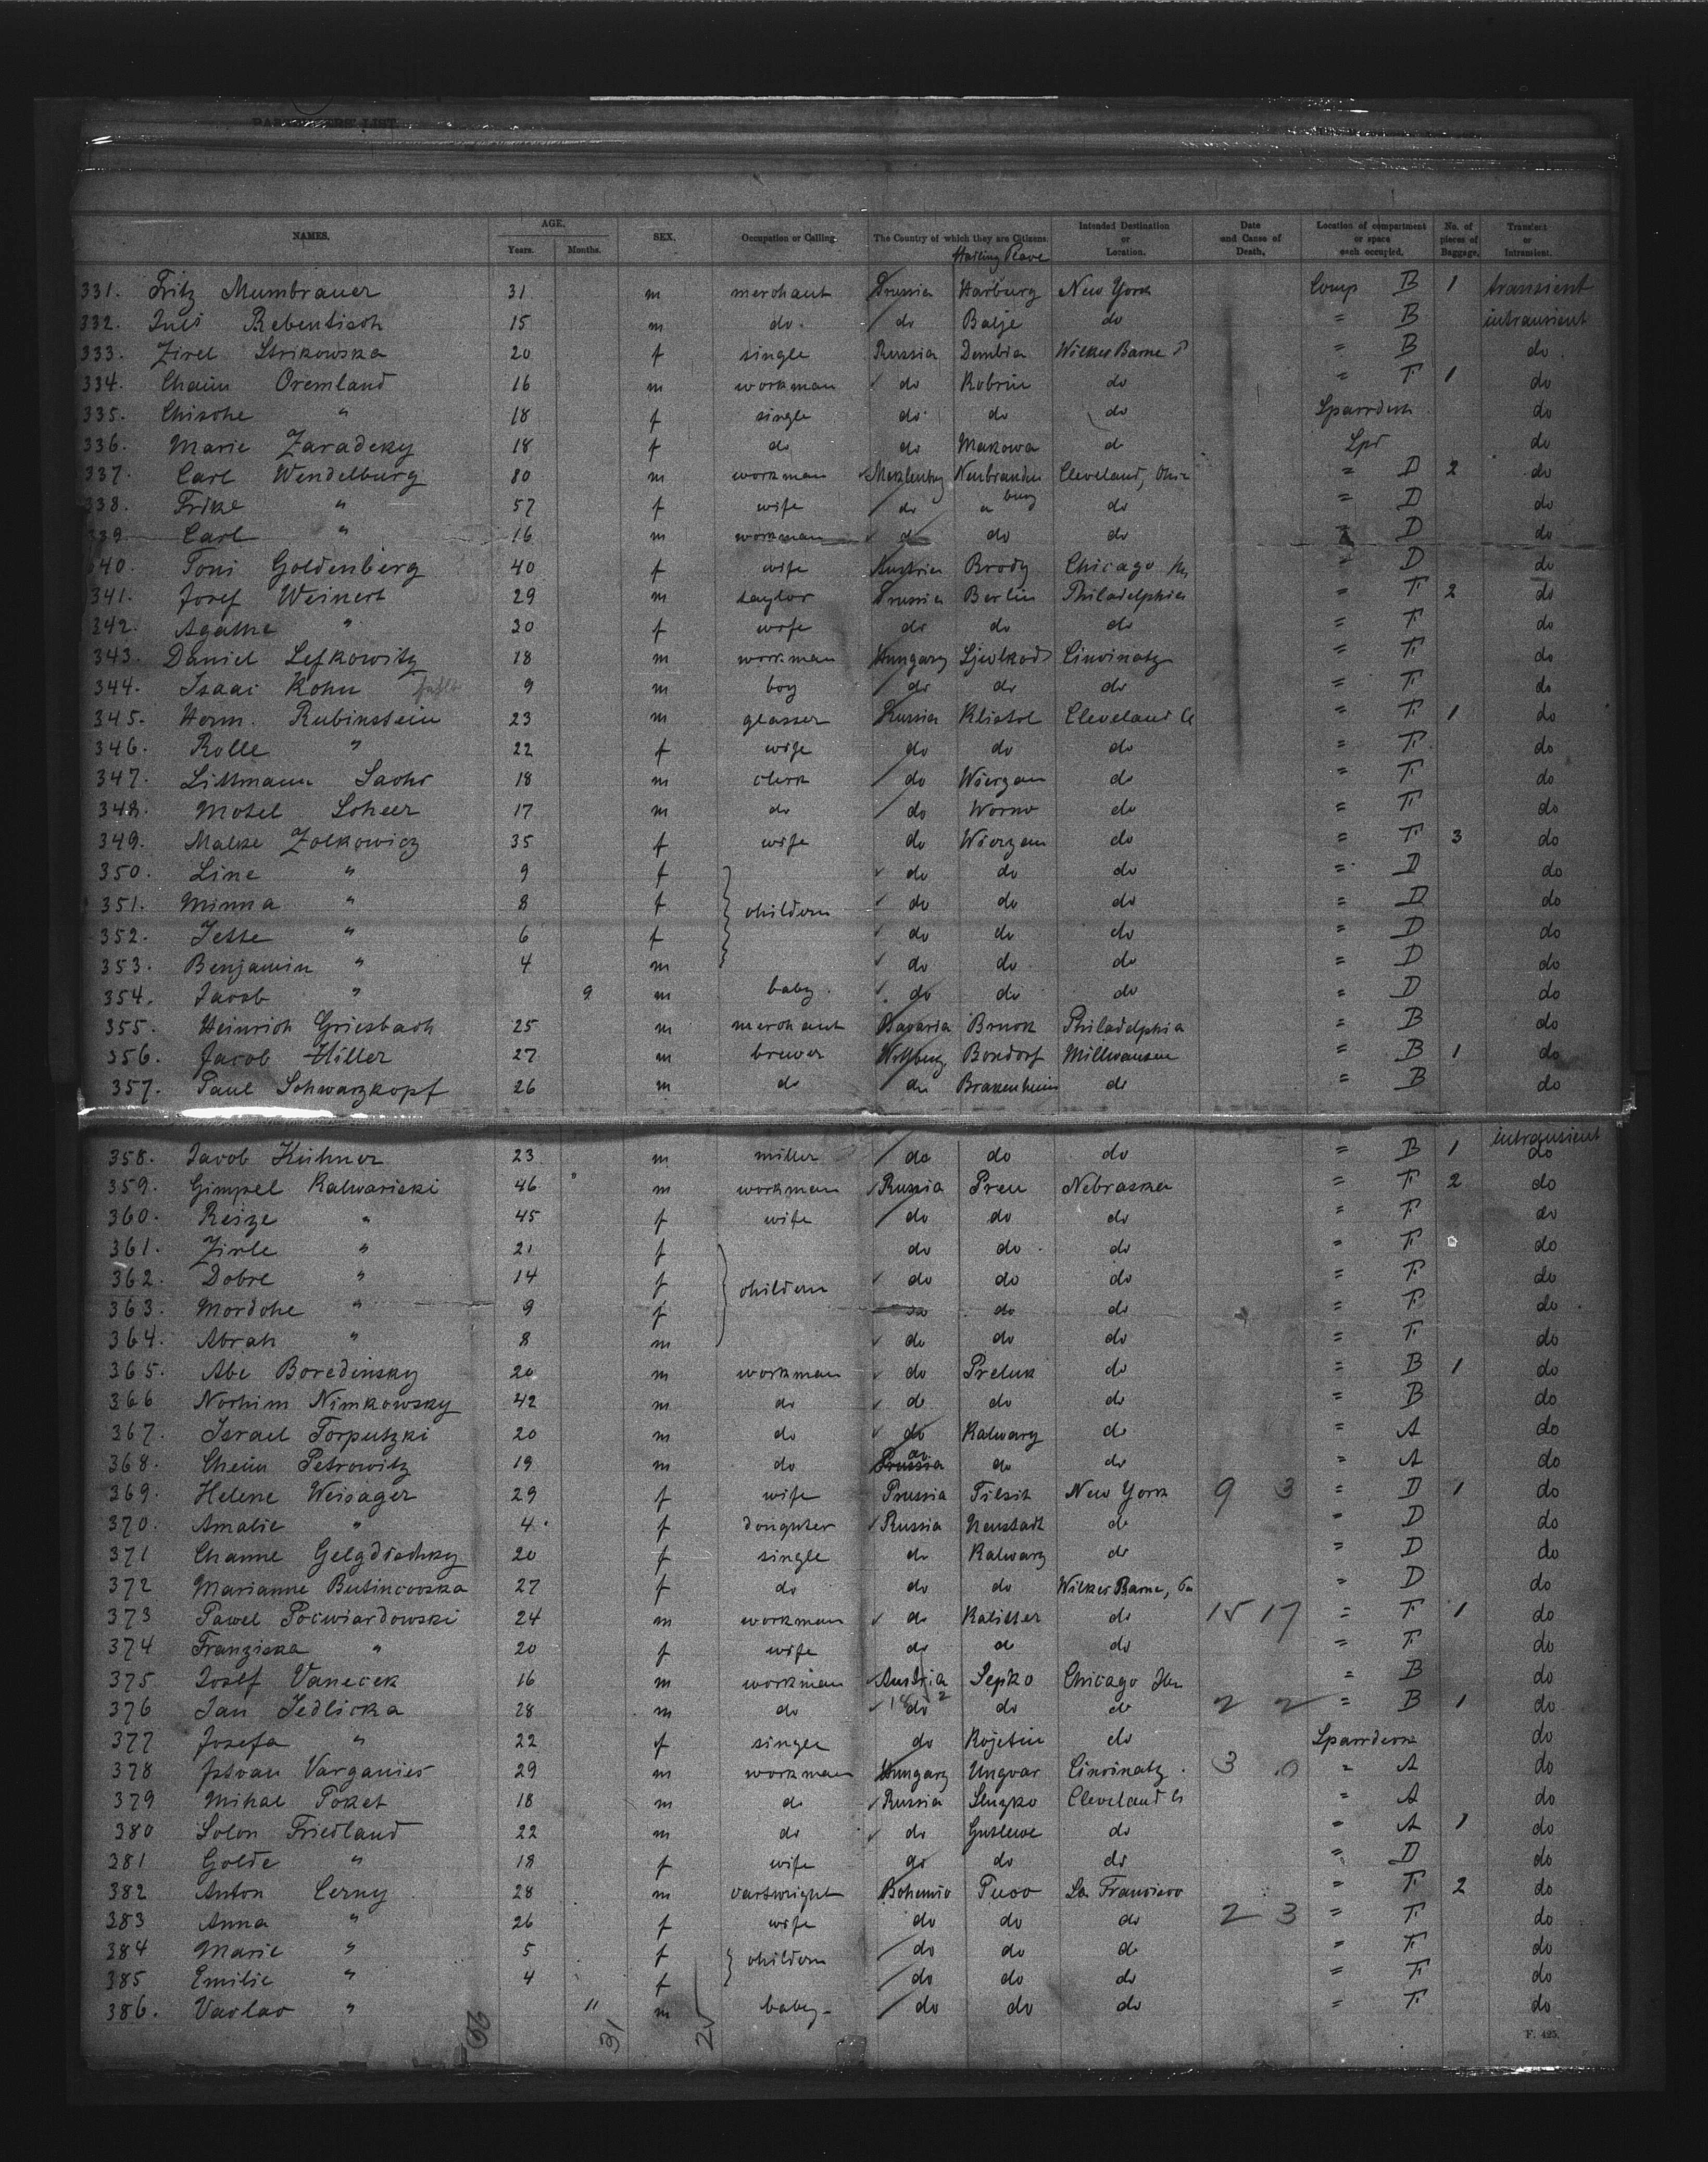 PASSENGERS' LIST.
NAMES. AGE. Years. Months. SEX. Occupation or Calling. The Country of which they are Citizens. Hailing Place Intended Destination or Location. Date and Cause of Death. Location of compartment or space each occupied. No. of pieces of Baggage. Transient or Intransient.
331. Fritz Mumbrauer 31 m merchant Prussia Harburg New York Comp B 1 transient
332. Rebentisch 15 m do. do Balje do " B intransient
333. Zirel Strikowska 20 f single Russia Dembia Wilkes Barre P " B do.
334. Chaim Oremland 16 m workman do Kobrin do " F 1 do
335. Chische " 18 f single do do do Sparrdeck do
336. Marie Zaradeky 18 f do do Makowa do Spr do
337. Carl Wendelburg 80 m workman Meklenburg Neubrandenburg Cleveland, Ohio " D 2 do
338. Frike " 57 f wife do " do " D do
339. Carl " 16 m workman do do do " D do
340. Toni Goldenberg 40 f wife Austria Brody Chicago " D do
341. Josef Weinert 29 m taylor Prussia Berlin Philadelphia " F 2 do
342. Agathe " 30 f wife do do do " F do
343. Daniel Lefkowitz 18 m workman Hungary Cincinatz " F do
344. Isaac Kohn 9 m boy do do do " F do
345. Herm. Rubinstein 23 m glasser Russia Cleveland " F 1 do
346. Rolle " 22 f wife do do do " F do
347. Littmann Sachs 18 m clerk do Wiergan do " F do
348. Motel Scheer 17 m do do Worno do " F do
349. Malke Zolkowicz 35 f wife do Wiergan do " F 3 do
350. Line " 9 f do do do " D do
351. Minna " 8 f children do do do " D do
352. Jette " 6 f do do do " D do
353. Benjamin " 4 m do do do " D do
354. Jacob " 9 m baby. do do do " D do
355. Heinrich Griesbach 25 m merchant Bavaria Bruck Philadelphia " B do
356. Jacob Hiller 27 m brewer Bondorf Millwausen " B 1 do
357. Paul Schwarzkopf 26 m do do Brakenheim do " B do
intransient
358. Jacob Kühner 23 m miller do do do " B 1 do
359. Gimpel Kalwariski 46 m workman Russia Pren Nebraska " F 2 do
360. Reize " 45 f wife do do do " F do
361. Zirle " 21 f do do do " F do
362. Dobre " 14 f children do do do " F do
363. Mordche " 9 f do do do " F do
364. Abrah " 8 m do do do " F do
365. Abe Boredinsky 20 m workman do Preluk do " B 1 do
366 Nochim Nimkowsky 42 m do do do do " B do
367. Israel Torputzki 20 m do do Kalwary do " A do
368. Cheim Petrowitz 19 m do Prussia do do do " A do
369. Helene Weisager 29 f wife Prussia Tilsit New York 9 3 " D 1 do
370. Amalie " 4 f doughter Russia Neustadt do " D do
371 Channe Gelgdischky 20 f single do Kalwary do " D do
372 Marianne Butincooska 27 f do do do Wilkes Barre, Pa " D do
373 Pawel Pocwiardowski 24 m workman do Kalisher do 15 17 " F 1 do
374 Franziska " 20 f wife do do do " F do
375 Josef Vanecek 16 m workman Austria Sepko Chicago " B do
376 Jan Jedlicka 28 m do do do do 2 2 " B 1 do
377 Josefa " 22 f single do Kojetin do Sparrdeck do
378 Istvan Varganies 29 m workman Hungary Ungvar Cincinatz. 3 0 " A do
379 Mihal Poket 18 m do Russia Sluzko Cleveland " A do
380 Solon Friedland 22 m do do Gutlewe do " A 1 do
381 Golde " 18 f wife do do do " D do
382 Anton Cerny 28 m cartwright Bohemia Puco Sa Francisco " F 2 do
383 Anna " 26 f wife do do do 2 3 " F do
384 Marie " 5 f children do do do " F do
385 Emilie " 4 f do do do " F do
386. Vaclav " 11 m baby do do do " F do
31
F. 425.